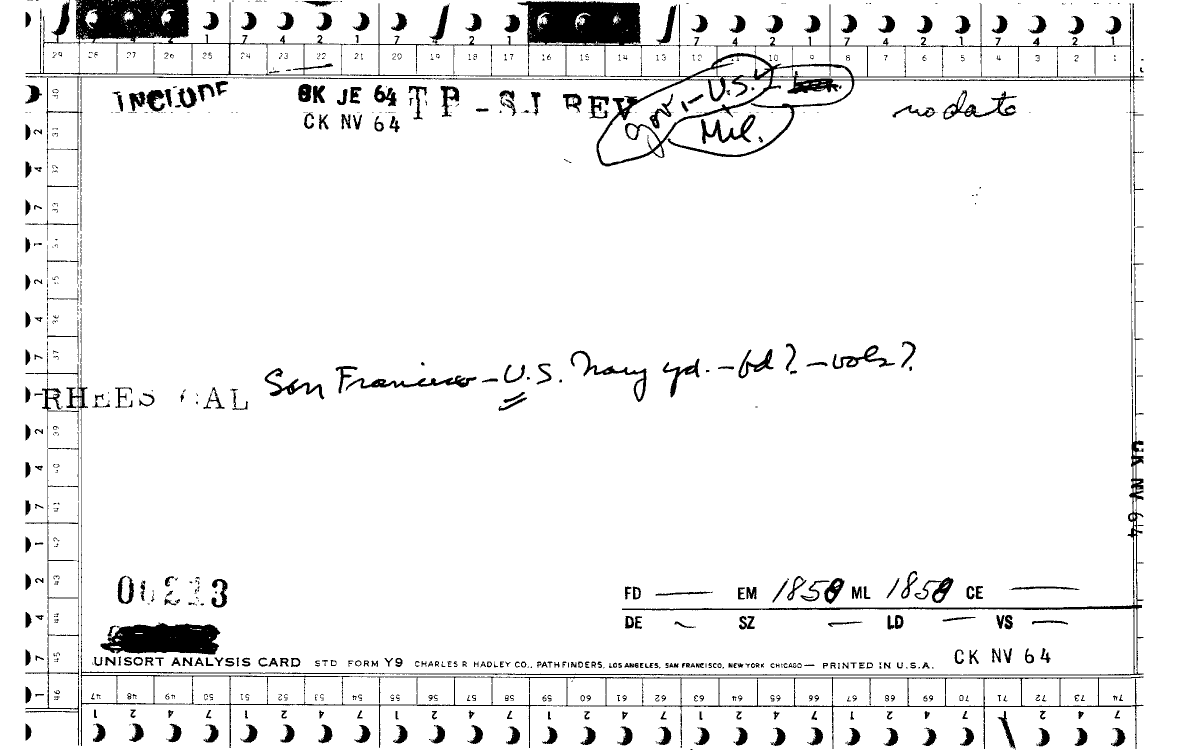 7 4 2 1 7 4 2 1 7 2 1 7 4 2 1 7 4 2 1
29 28 27 26 25 24 23 22 21 20 19 18 17 16 15 14 13 12 11 10 9 8 7 6 5 4 3 2 1
INCLUDE CK JE 64 TP - SJ REV Gov't - U.S. no date
CK NV 64 Mil.
San Francisco - U.S. Navy yd. - fd? - vols?
RHEES CAL
CK NV 64
00213
FD — EM 1850 ML 1850 CE —
DE ~ SZ — LD — VS —
UNISORT ANALYSIS CARD STD FORM Y9 CHARLES R HADLEY CO., PATHFINDERS, LOS ANGELES, SAN FRANCISCO, NEW YORK CHICAGO — PRINTED IN U.S.A. CK NV 64
47 48 49 50 51 52 53 54 55 56 57 58 59 60 61 62 63 64 65 66 67 68 69 70 71 72 73 74
1 2 4 7 1 2 4 7 1 2 4 7 1 2 4 7 1 2 4 7 1 2 4 7 1 2 4 7